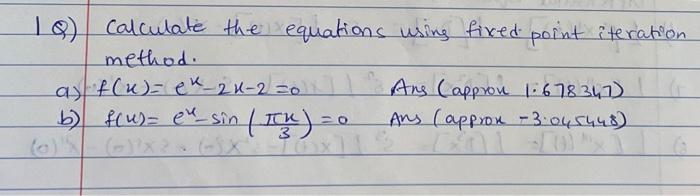 1 Q) Calculate the equations using fixed point iteration
method.
a) f(x) = e^x - 2x - 2 = 0 Ans (approx 1.678347)
b) f(x) = e^x - sin (πx/3) = 0 Ans (approx -3.045448)